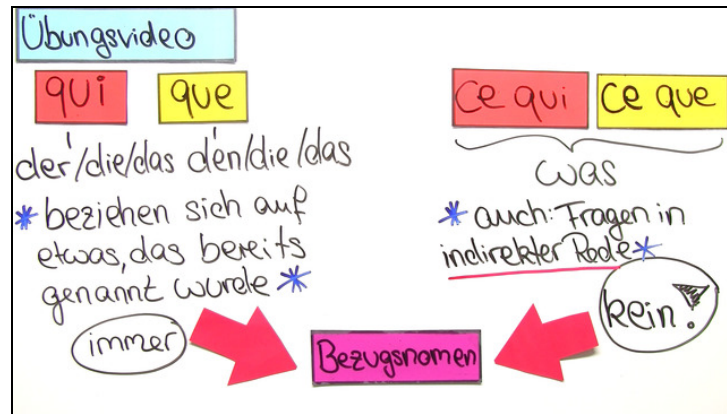 Übungsvideo
qui que
der/die/das den/die/das
* beziehen sich auf
etwas, das bereits
genannt wurde *
immer
ce qui ce que
was
* auch: Fragen in
indirekter Rede *
kein!
Bezugsnomen